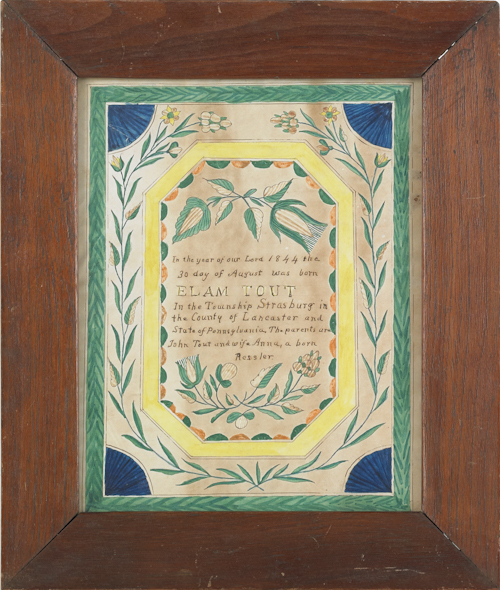 In the year of our Lord 1844 the
30 day of August was born
ELAM TOUT
In the Township Strasburg in
the County of Lancaster and
State of Pennsylvania. The parents are
John Tout and wife Anna, a born
Ressler.